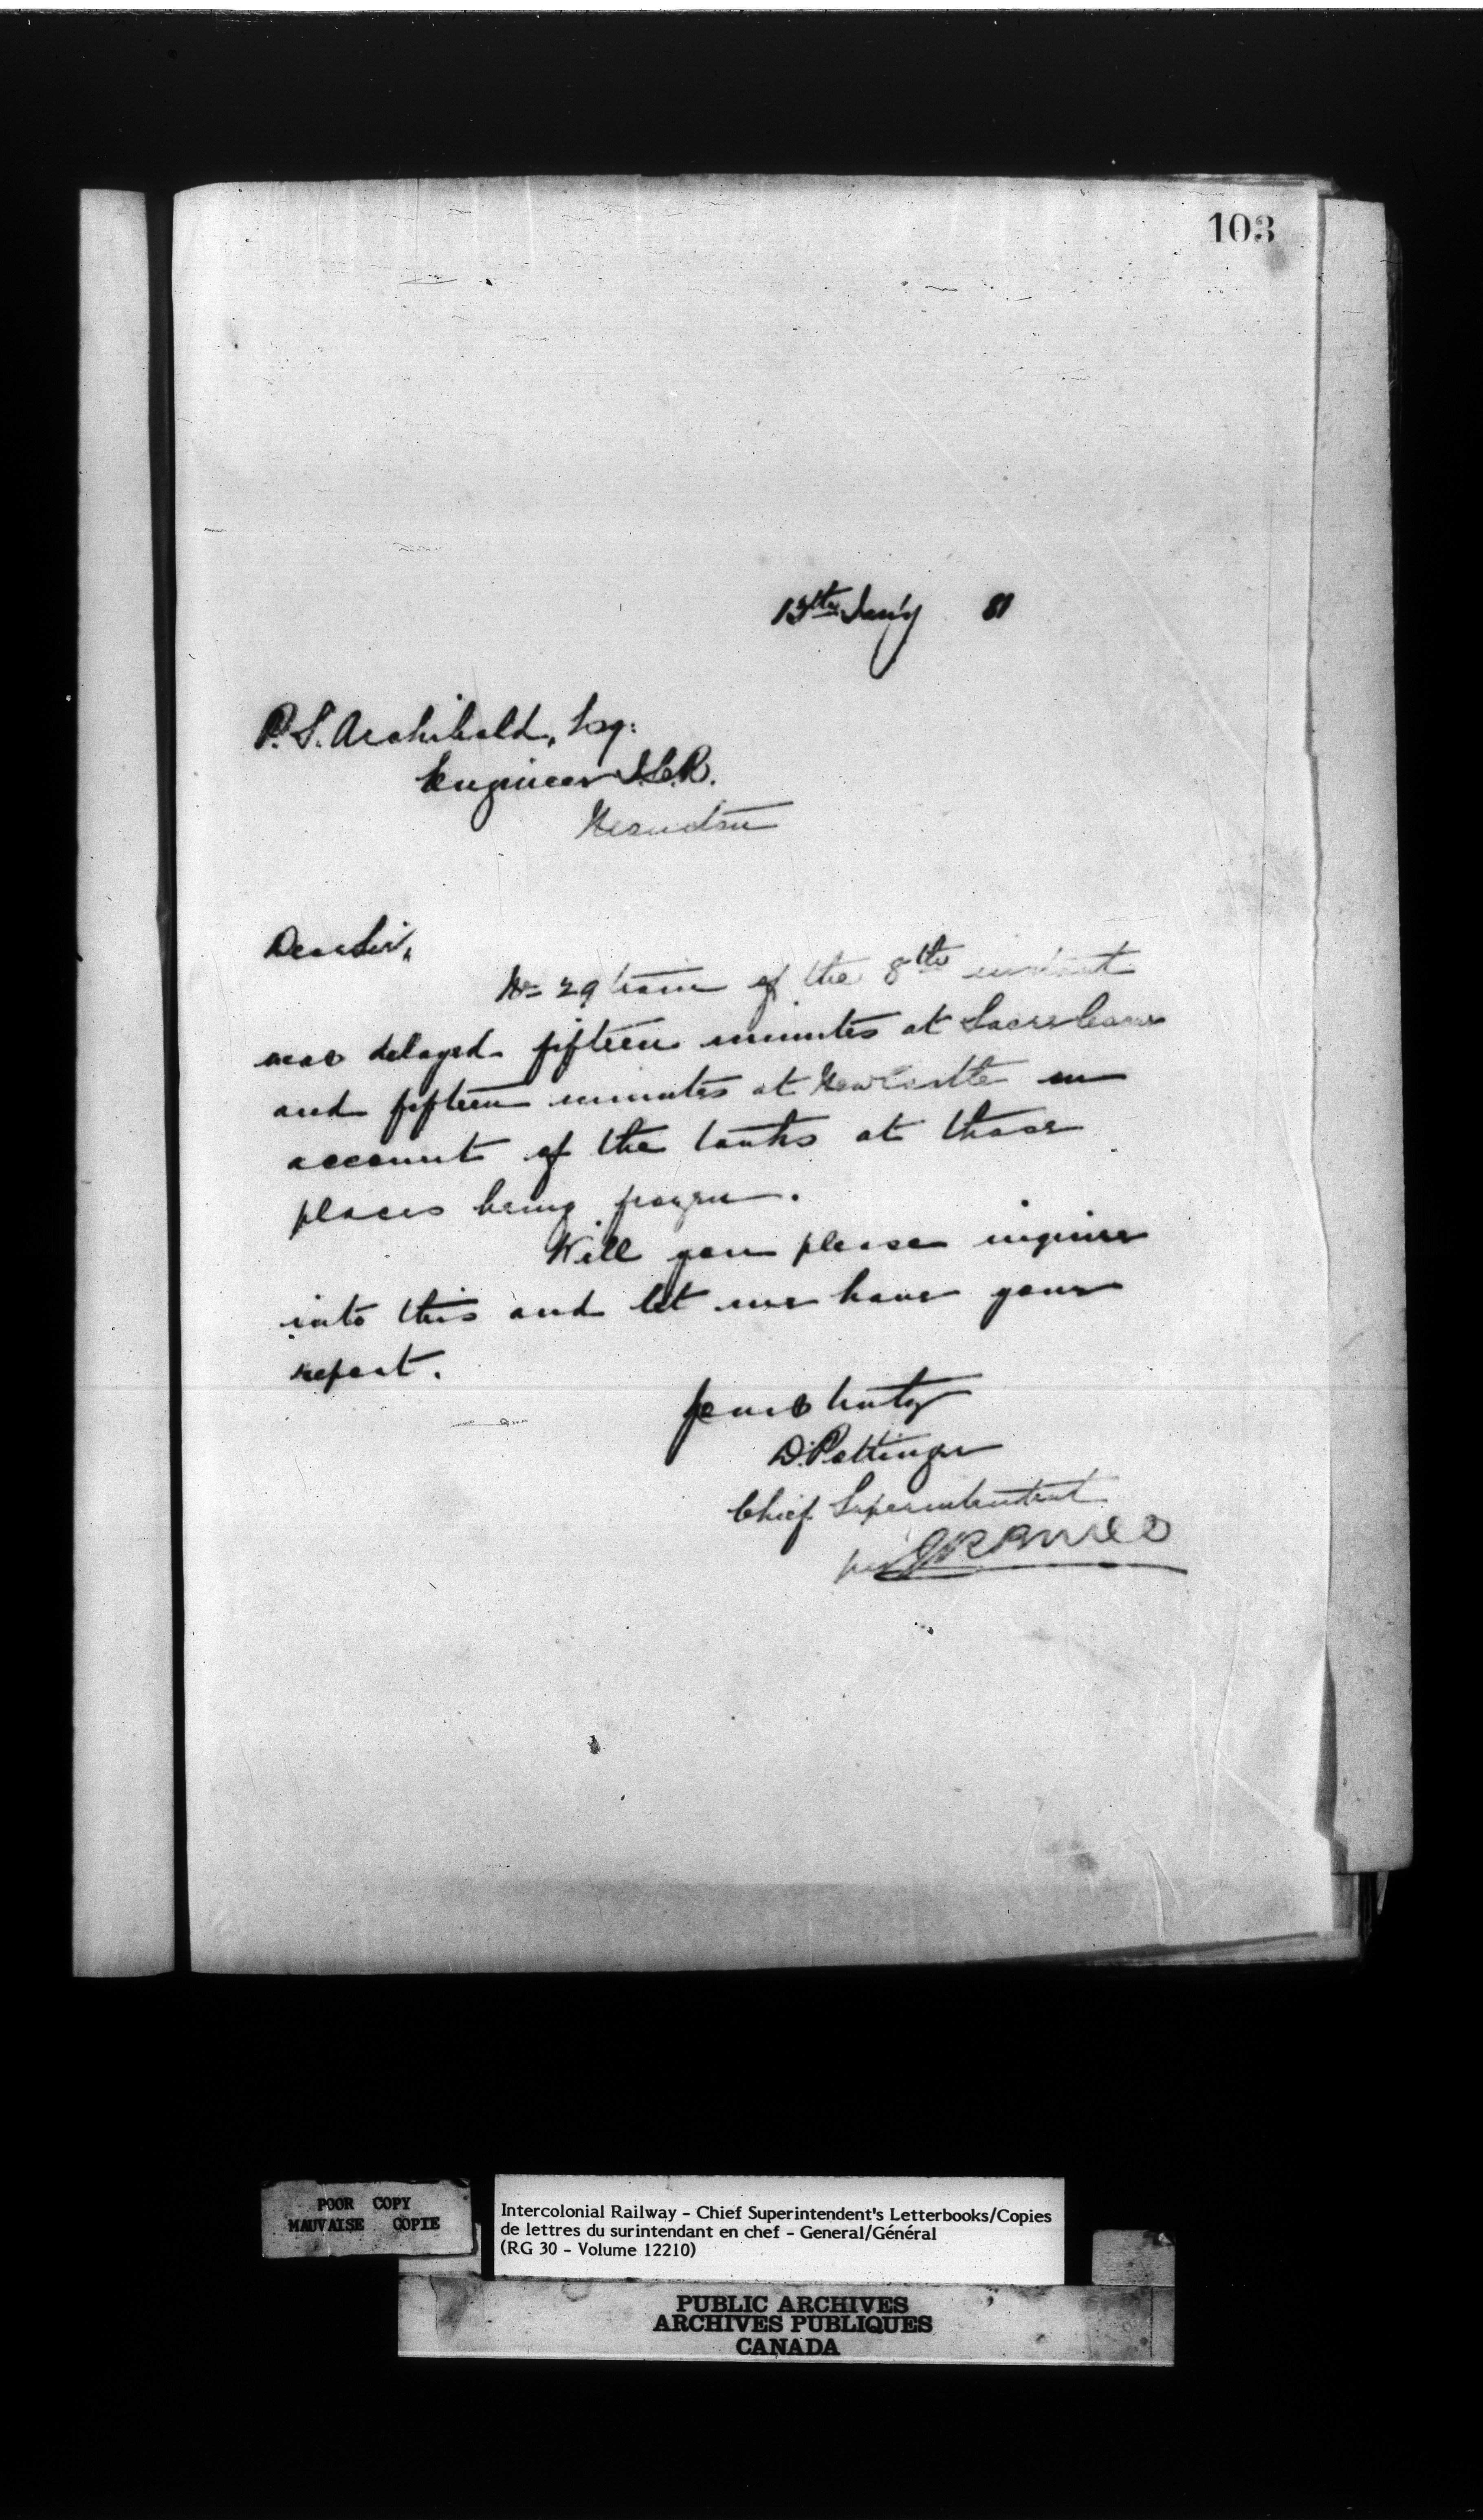 103
13th Jan'y 81
P. S. Archibald, Esq:
Engineer I.C.R.
Moncton
Dear Sir,
No 29 train of the 8th instant
was delayed fifteen minutes at
and fifteen minutes at Newcastle on
account of the tanks at those
places being frozen.
Will you please inquire
into this and let me have your
report.
Yours truly
D. Pottinger
Chief Superintendent
per
POOR COPY
MAUVAISE COPIE
Intercolonial Railway - Chief Superintendent's Letterbooks/Copies
de lettres du surintendant en chef - General/Général
(RG 30 - Volume 12210)
PUBLIC ARCHIVES
ARCHIVES PUBLIQUES
CANADA